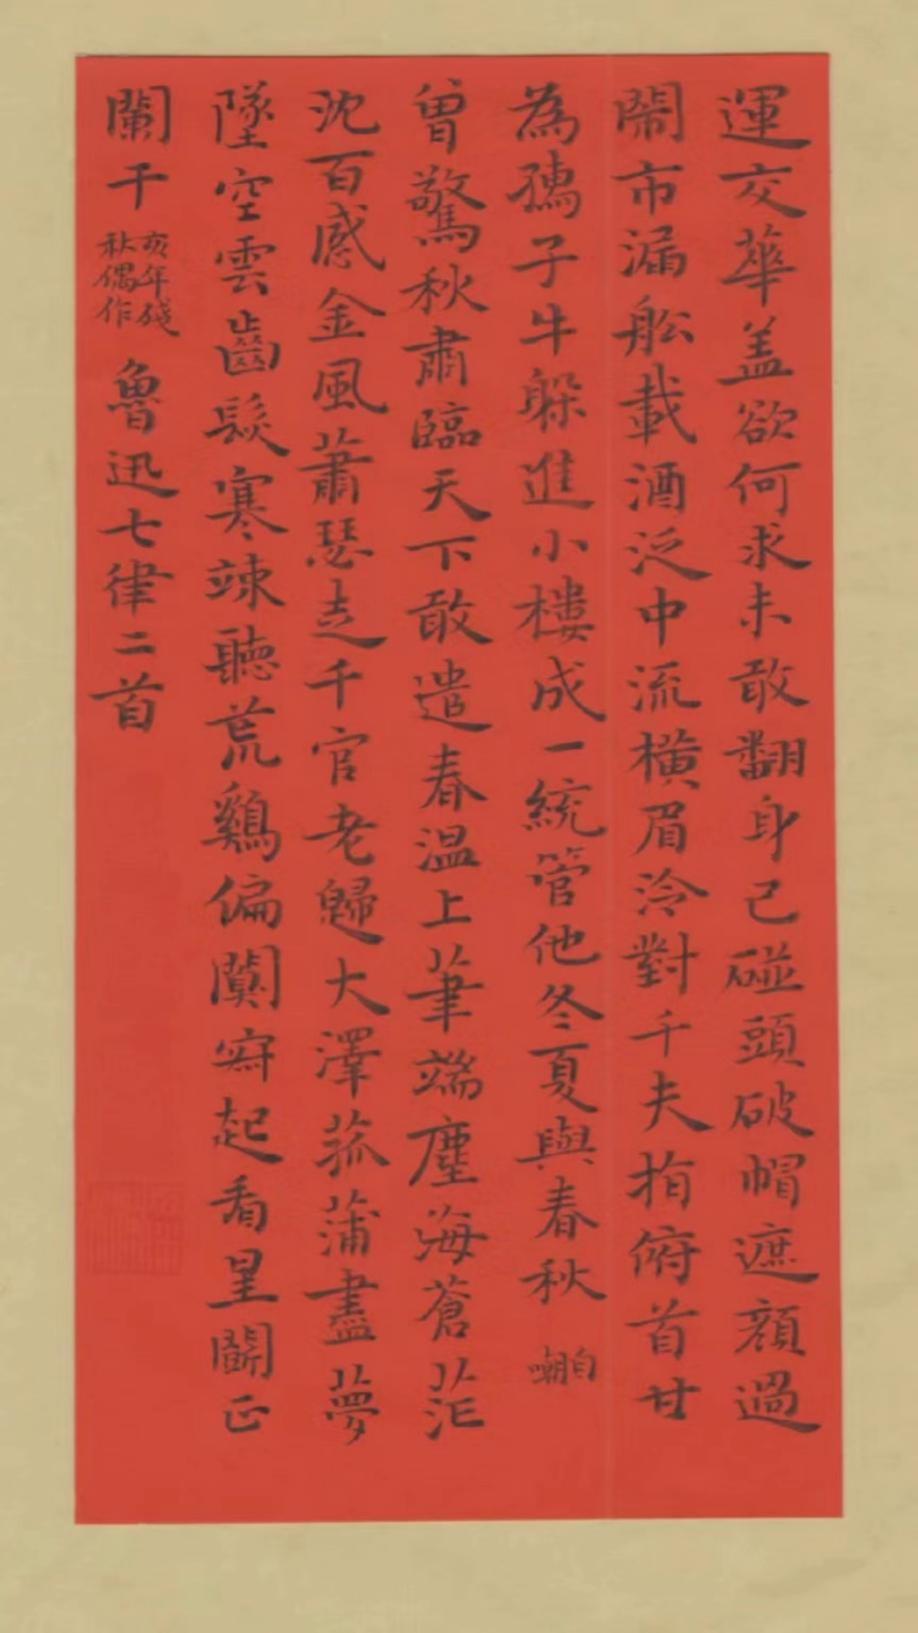 運交華盖欲何求未敢翻身已碰頭破帽遮顔過
鬧市漏船載酒泛中流橫眉冷對千夫指俯首甘
為孺子牛躲進小樓成一統管他冬夏與春秋 自嘲
曾驚秋肅臨天下敢遣春温上筆端塵海蒼茫
沈百感金風蕭瑟走千官老歸大澤菰蒲盡夢
墜空雲齒髮寒竦聽荒鷄偏闃寂起看星闌正
闌干 亥年殘秋偶作 魯迅七律二首